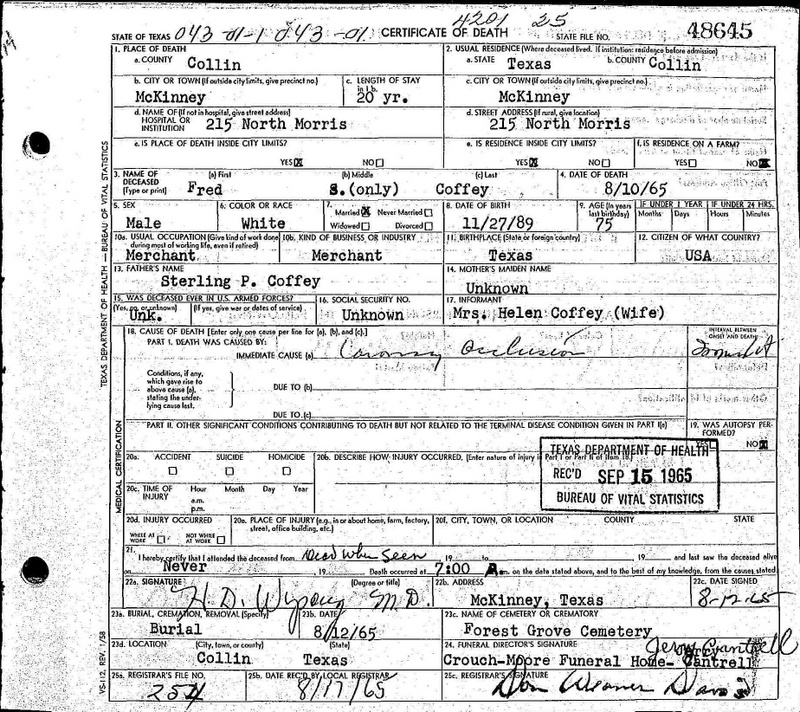 4201 25
STATE OF TEXAS 043-01-1 043-01. CERTIFICATE OF DEATH STATE FILE NO. 48645
1. PLACE OF DEATH
a. COUNTY Collin
2. USUAL RESIDENCE (Where deceased lived. If institution: residence before admission)
a. STATE Texas b. COUNTY Collin
b. CITY OR TOWN (If outside city limits, give precinct no.)
McKinney
c. LENGTH OF STAY in 1b.
20 yr.
c. CITY OR TOWN (If outside city limits, give precinct no.)
McKinney
d. NAME OF (If not in hospital, give street address)
HOSPITAL OR INSTITUTION 215 North Morris
d. STREET ADDRESS (If rural, give location)
215 North Morris
e. IS PLACE OF DEATH INSIDE CITY LIMITS?
YES X NO
e. IS RESIDENCE INSIDE CITY LIMITS?
YES X NO
f. IS RESIDENCE ON A FARM?
YES NO X
3. NAME OF DECEASED (Type or print)
(a) First Fred
(b) Middle S.(only)
(c) Last Coffey
4. DATE OF DEATH
8/10/65
5. SEX
Male
6. COLOR OR RACE
White
7. Married X Never Married
Widowed Divorced
8. DATE OF BIRTH
11/27/89
9. AGE (In years last birthday)
75
IF UNDER 1 YEAR
Months Days
IF UNDER 24 HRS.
Hours Minutes
10a. USUAL OCCUPATION (Give kind of work done during most of working life, even if retired)
Merchant
10b. KIND OF BUSINESS OR INDUSTRY
Merchant
11. BIRTHPLACE (State or foreign country)
Texas
12. CITIZEN OF WHAT COUNTRY?
USA
13. FATHER'S NAME
Sterling P. Coffey
14. MOTHER'S MAIDEN NAME
Unknown
15. WAS DECEASED EVER IN U.S. ARMED FORCES?
(Yes, no, or unknown) (If yes, give war or dates of service)
Unk.
16. SOCIAL SECURITY NO.
Unknown
17. INFORMANT
Mrs. Helen Coffey (Wife)
18. CAUSE OF DEATH [Enter only one cause per line for (a), (b), and (c).]
PART I. DEATH WAS CAUSED BY:
IMMEDIATE CAUSE (a) Coronary Occlusion
INTERVAL BETWEEN ONSET AND DEATH
Conditions, if any, which gave rise to above cause (a), stating the underlying cause last.
DUE TO (b)
DUE TO (c)
PART II. OTHER SIGNIFICANT CONDITIONS CONTRIBUTING TO DEATH BUT NOT RELATED TO THE TERMINAL DISEASE CONDITION GIVEN IN PART I(a)
19. WAS AUTOPSY PERFORMED?
YES NO X
20a. ACCIDENT SUICIDE HOMICIDE
20b. DESCRIBE HOW INJURY OCCURRED. (Enter nature of injury in Part I or Part II of item 18.)
TEXAS DEPARTMENT OF HEALTH
REC'D SEP 15 1965
BUREAU OF VITAL STATISTICS
20c. TIME OF INJURY Hour Month Day Year
a.m.
p.m.
20d. INJURY OCCURRED
WHILE AT WORK NOT WHILE AT WORK
20e. PLACE OF INJURY (e.g., in or about home, farm, factory, street, office building, etc.)
20f. CITY, TOWN, OR LOCATION COUNTY STATE
21. I hereby certify that I attended the deceased from Dead When Seen 19 to 19 and last saw the deceased alive
on Never 19 Death occurred at 7:00 A.m. on the date stated above, and to the best of my knowledge, from the causes stated
22a. SIGNATURE (Degree or title)
H. D. M.D.
22b. ADDRESS
McKinney, Texas
22c. DATE SIGNED
8-12-65
23a. BURIAL, CREMATION, REMOVAL (Specify)
Burial
23b. DATE
8/12/65
23c. NAME OF CEMETERY OR CREMATORY
Forest Grove Cemetery
23d. LOCATION (City, town, or county) (State)
Collin Texas
24. FUNERAL DIRECTOR'S SIGNATURE Jerry Cantrell
Crouch-Moore Funeral Home- Cantrell
25a. REGISTRAR'S FILE NO.
254
25b. DATE REC'D BY LOCAL REGISTRAR
8/17/65
25c. REGISTRAR'S SIGNATURE
Don Weaver Davis
TEXAS DEPARTMENT OF HEALTH — BUREAU OF VITAL STATISTICS
MEDICAL CERTIFICATION
VS-112, REV. 1/58